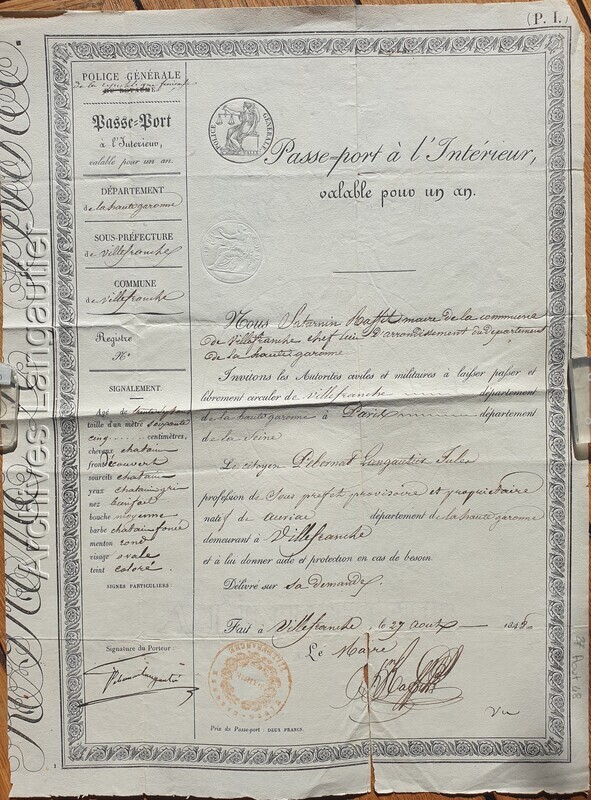 (P. I.)
POLICE GÉNÉRALE
de la république française
DU ROYAUME
Passe-Port
à l'Intérieur,
valable pour un an.
DÉPARTEMENT
de la haute garonne
SOUS-PRÉFECTURE
de villefranche
COMMUNE
de villefranche
Registre
N.º
SIGNALEMENT.
Agé de
taille d'un mètre soixante
cinq centimètres,
cheveux chatain
front découvert
sourcils chatain
yeux chatain gris
nez bienfait
bouche moyenne
barbe chatain foncé
menton rond
visage ovale
teint coloré
SIGNES PARTICULIERS :
Signature du Porteur :
POLICE GÉNÉRALE
Passe-port à l'Intérieur,
valable pour un an.
Nous Saturnin maire de la commune
de villefranche chef lieu d'arrondissement du département
de la haute garonne
Invitons les Autorités civiles et militaires à laisser passer et
librement circuler de villefranche département
de la haute garonne à Paris département
de la Seine
Le citoyen Langautier Jules
profession de Sous préfet provisoire et propriétaire
natif de auriac département de la haute garonne
demeurant à Villefranche
et à lui donner aide et protection en cas de besoin.
Délivré sur sa demande
Fait à Villefranche le 27 aout 1848
Le Maire
Vu
Prix du Passe-port : DEUX FRANCS.
27 Aout 48
Archives Langautier